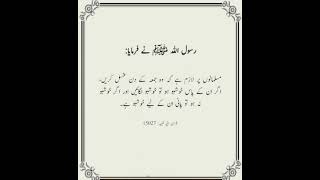 رسول اللہ ﷺ نے فرمایا:
مسلمانوں پر لازم ہے کہ وہ جمعہ کے دن غسل کریں،
اگر ان کے پاس خوشبو ہو تو خوشبو لگائیں اور اگر خوشبو
نہ ہو تو پانی ان کے لیے خوشبو ہے۔
15027